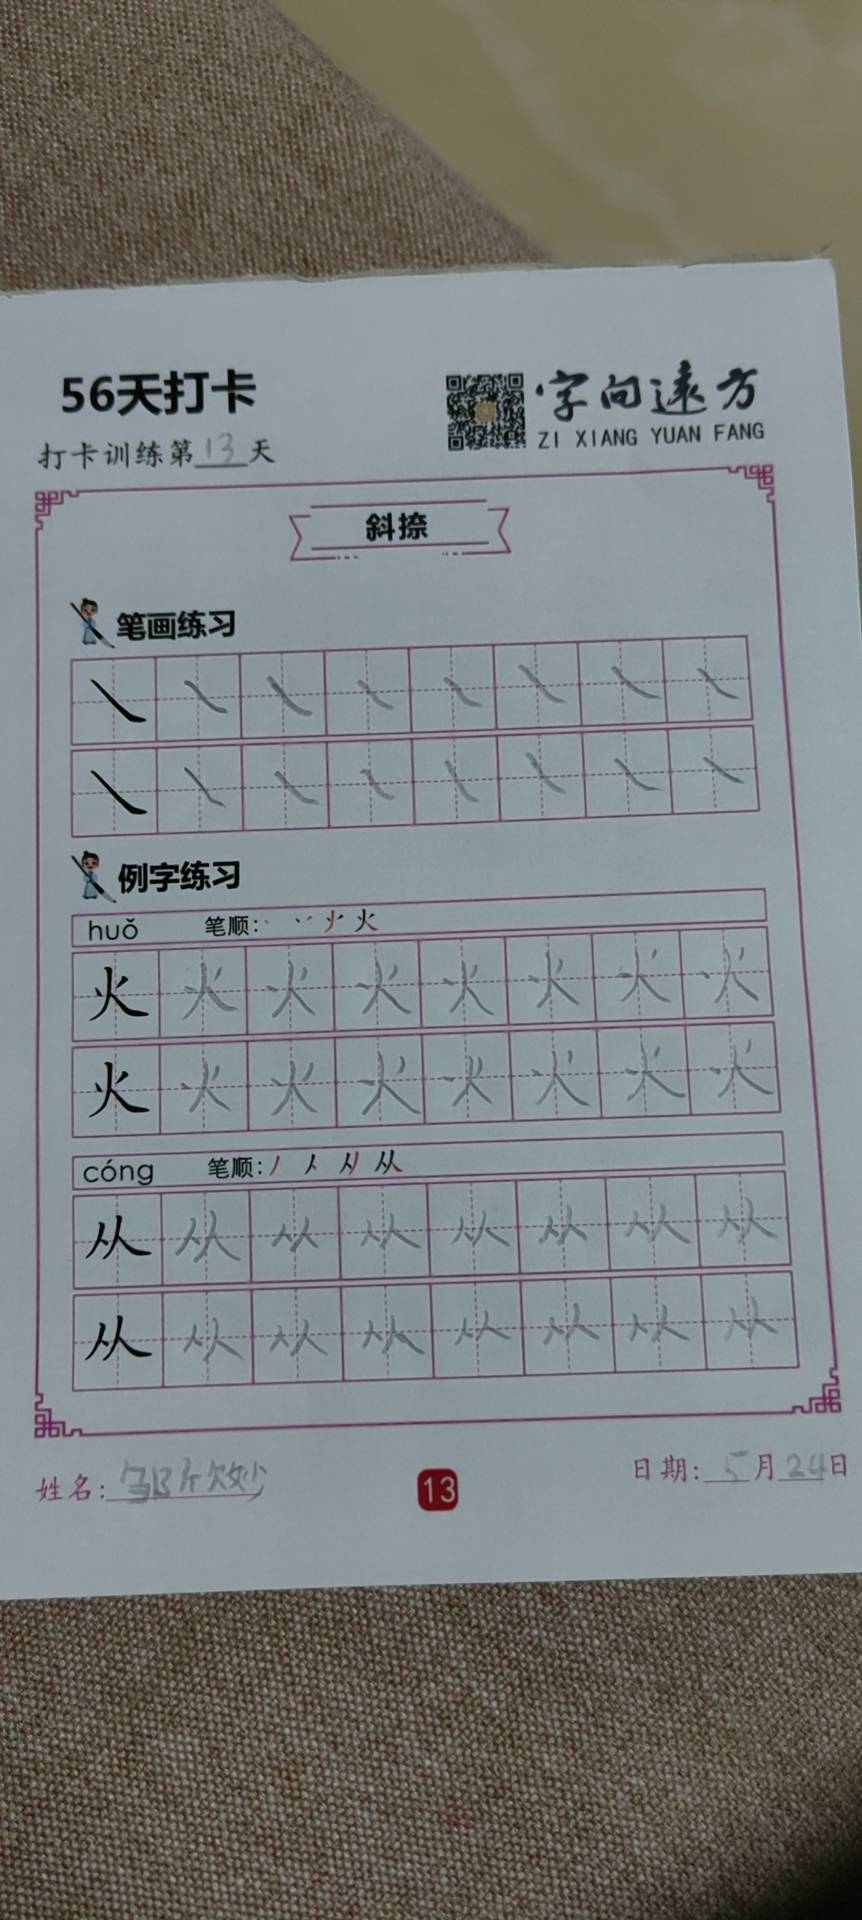 56天打卡
字向远方
ZI XIANG YUAN FANG
打卡训练第13天
斜捺
笔画练习
㇏ ㇏ ㇏ ㇏ ㇏ ㇏ ㇏ ㇏
㇏ ㇏ ㇏ ㇏ ㇏ ㇏ ㇏ ㇏
例字练习
huǒ 笔顺: 火
火 火 火 火 火 火 火 火
火 火 火 火 火 火 火 火
cóng 笔顺: 丿 人 从
从 从 从 从 从 从 从 从
从 从 从 从 从 从 从 从
姓名:
13
日期: 5月24日